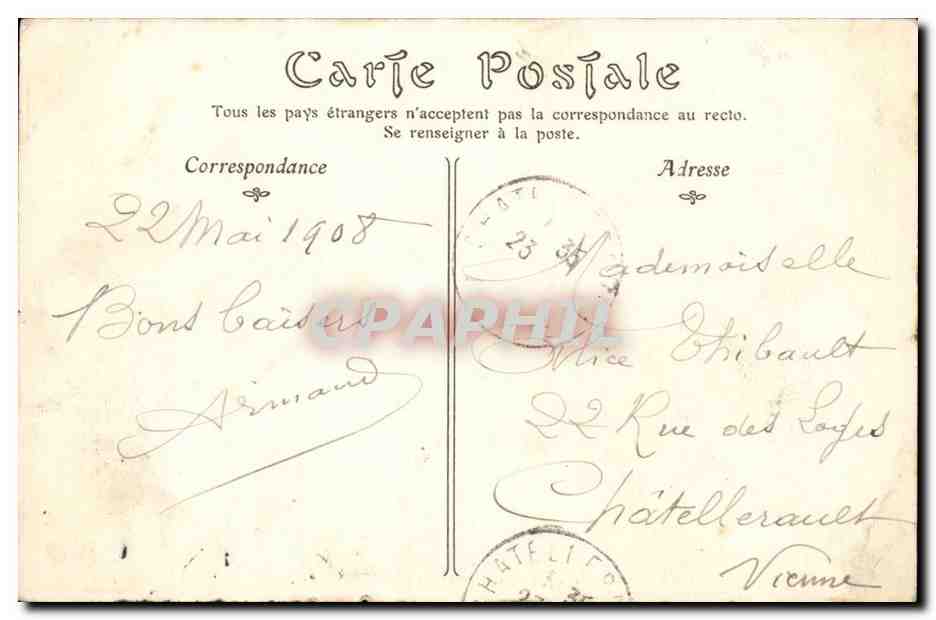 Carte Postale
Tous les pays étrangers n'acceptent pas la correspondance au recto.
Se renseigner à la poste.
Correspondance
22 Mai 1908
Bons baisers
Armand
Adresse
Mademoiselle
Alice Thibault
22 Rue des Loges
Châtellerault
Vienne
23 35
CPAPHIL
HATELLER